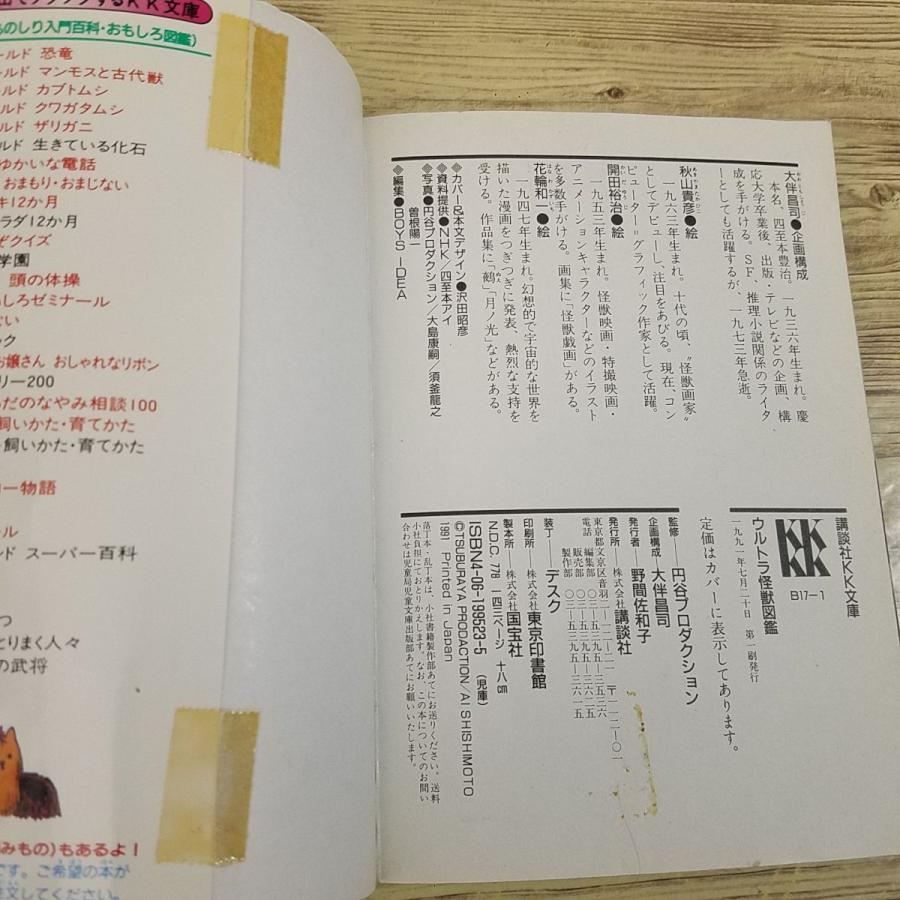 するKK文庫
ものしり入門百科・おもしろ図鑑)
ールド 恐竜
ールド マンモスと古代獣
ールド カブトムシ
ールド クワガタムシ
ールド ザリガニ
ールド 生きている化石
ゆかいな電話
おまもり・おまじない
キ12か月
ラダ12か月
ぞクイズ
学園
頭の体操
しろゼミナール
ない
ック
お嬢さん おしゃれなリボン
リー200
らだのなやみ相談100
飼いかた・育てかた
飼いかた・育てかた
ー物語
ール
ルド スーパー百科
つ
とりまく人々
の武将
みもの)もあるよ!
です。ご希望の本が
注文してください。
大伴昌司●企画構成
おおともしょうじ
本名、四至本豊治。一九三六年生まれ。慶
応大学卒業後、出版・テレビなどの企画、構
成を手がける。SF、推理小説関係のライタ
ーとしても活躍するが、一九七三年急逝。
秋山貴彦●絵
あきやまたかひこ
一九六三年生まれ。十代の頃、“怪獣画家”
としてデビューし、注目をあびる。現在、コン
ピューター=グラフィック作家として活躍。
開田裕治●絵
かいだゆうじ
一九五三年生まれ。怪獣映画・特撮映画・
アニメーションキャラクターなどのイラスト
を多数手がける。画集に「怪獣戯画」がある。
花輪和一●絵
はなわかずいち
一九四七年生まれ。幻想的で宇宙的な世界を
描いた漫画をつぎつぎに発表、熱烈な支持を
受ける。作品集に「鵺」「月ノ光」などがある。
◆カバー&本文デザイン●沢田昭彦
◆資料提供●NHK/四至本アイ
◆写真●円谷プロダクション/大島康嗣/須釜龍之
曽根陽一
◆編集●BOYS IDEA
講談社KK文庫
KK
KK
B17-1
ウルトラ怪獣図鑑
一九九一年七月二十日 第一刷発行
定価はカバーに表示してあります。
監修――円谷プロダクション
企画構成――大伴昌司
発行者――野間佐和子
発行所――株式会社講談社
東京都文京区音羽二-一二-二一 〒一一二-〇一
電話 編集部 〇三-五三九五-三五三六
販売部 〇三-五三九五-三六二五
製作部 〇三-五三九五-三六一五
装丁――デスク
印刷所――株式会社東京印書館
製本所――株式会社国宝社
N.D.C.778 一四三ページ 十八cm
ISBN4-06-199523-5 (児庫)
©TSUBURAYA PRODACTION/AI SHISHIMOTO
1991 Printed in Japan
落丁本・乱丁本は、小社書籍製作部あてにお送りください。送料
小社負担にておとりかえします。なお、この本についてのお問い
合わせは児童局児童文庫出版部あてにお願いいたします。